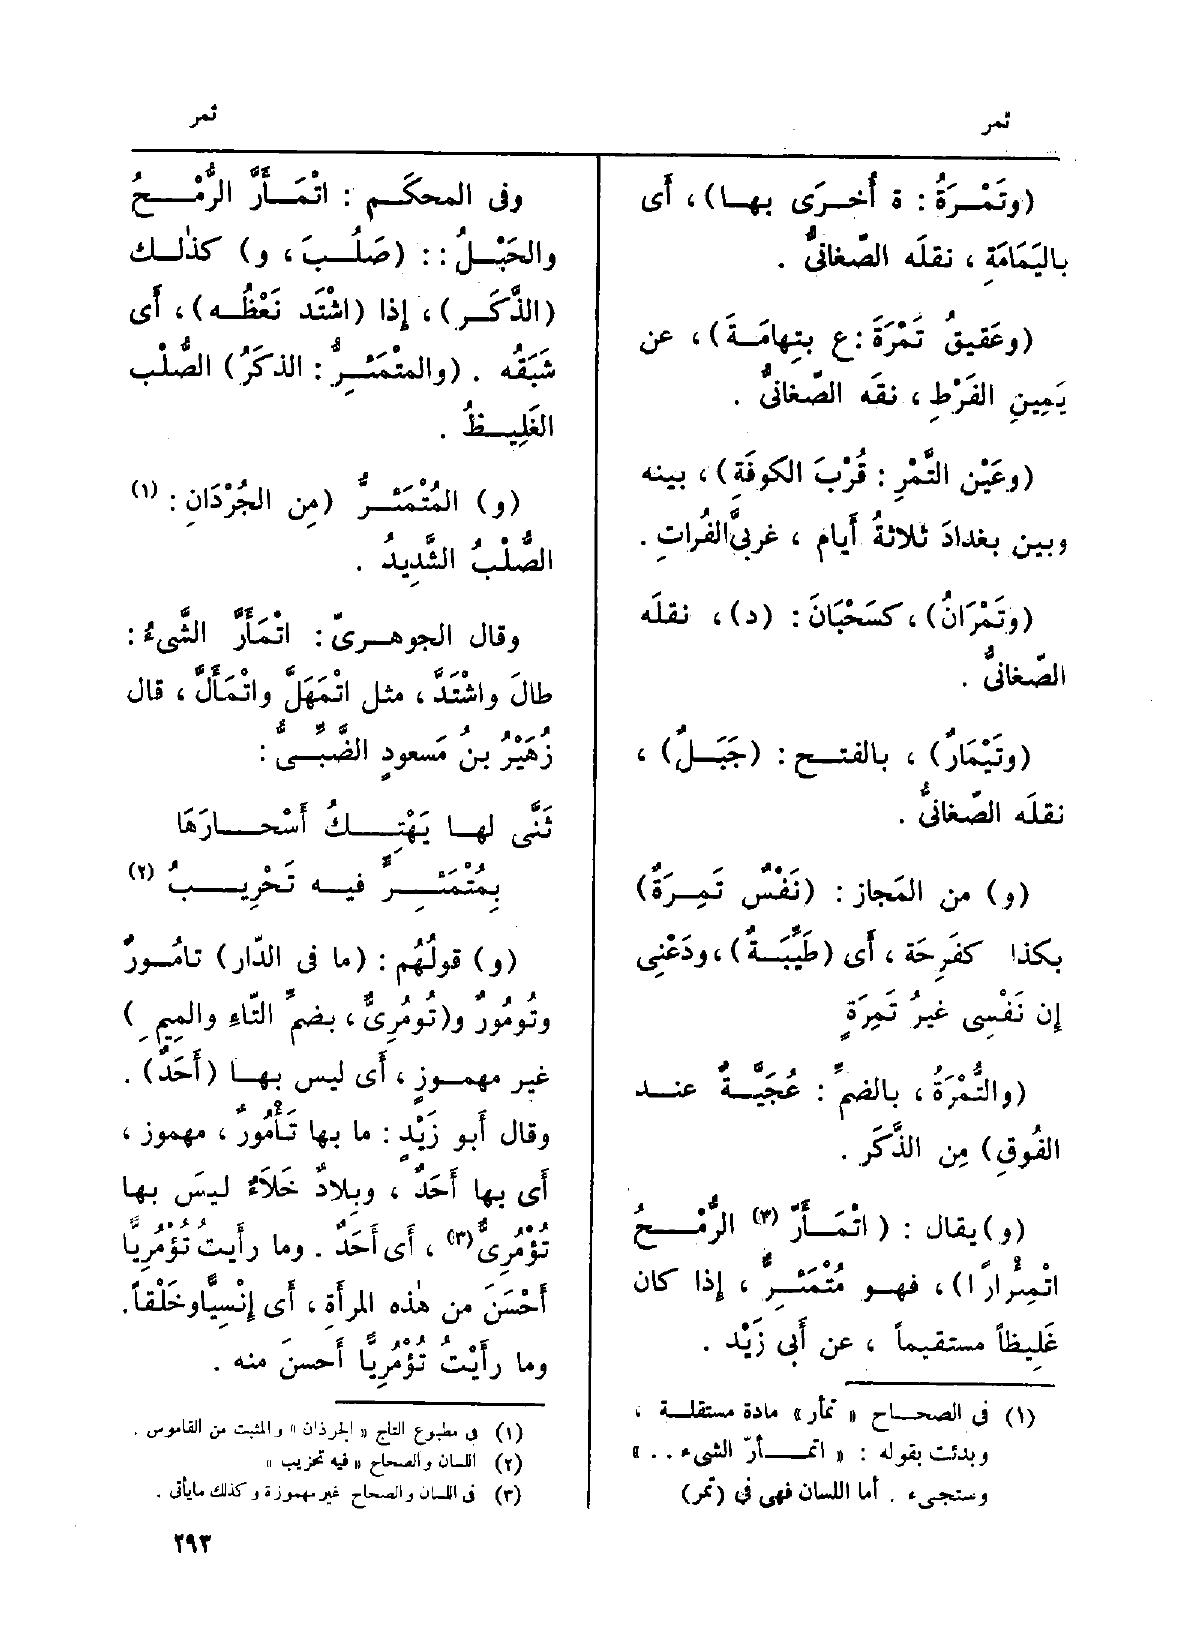 تمر
ثمر
(وتَمْرَةُ : ة أُخـرَى بهـا)، أَى
باليَمَامَةِ ، نقلَه الصّغانىُّ .
(وعَقيقُ تَمْرَةَ :ع بتِهامَـةَ)، عن
يَمِينِ الفَرْطِ ، نقَه الصّغانىُّ .
(وعَيْن التَّمْرِ : قُرْبَ الكوفَةِ)، بينه
وبين بغدادَ ثلاثةُ أَيام ، غربىَّ الفُراتِ .
(وتَمْرَانُ)، كسَحْبَانَ: (د)، نقلَه
الصّغانىُّ .
(وتَيْمَارٌ) ، بالفتـح : (جَبَـلٌ) ،
نقلَه الصّغانىُّ .
(و) من المَجاز : (نَفْسٌ تَمِـرَةٌ)
بكذا كفَرِحَة ، أَى (طَيِّبَـةٌ)، ودَعْنِى
إن نَفْسِى غيرُ تَمِرَةٍ
(والتُّمْرَةُ ، بالضمّ : عُجَيَّـةٌ عنـد
الفُوقِ) مِن الذَّكَر .
(و)يقال : ( اتْمَـأَرّ (٣) الرُّمْـحُ
اتْمِئْرارًا)، فهـو مُتْمَئِـرٌّ ، إذا كان
غَلِيظاً مستقيماً ، عن أَبى زَيْد .
(١) فى الصحـاح « تمأر» مادة مستقلـة ،
وبدئت بقوله : « اتمـأرّ الشىء .. »
وستجىء . أما اللسان فهى فى (تمر)
وفى المحكَـم : اتْمَـأَرَّ الرُّمْـحُ
والحَبْـلُ : : (صَلُـبَ، و) كذٰلـك
(الذَّكَـر)، إذا (اشْتَد نَعْظُـه)، أَى
شَبَقُه . (والمتْمَئِـرُّ : الذكَرُ) الصُّلْب
الغَلِيـظُ .
(و) المُتْمَئِـرُّ (مِن الجُرْدَانِ : (١)
الصُّلْبُ الشَّدِيدُ .
وقال الجوهـرىّ : اتْمَأَرَّ الشَّىءُ :
طالَ واشْتَدَّ ، مثل اتْمَهَلَّ واتْمَأَلَّ ، قال
زُهَيْرُ بنُ مَسعودٍ الضَّبِّـىُّ :
ثَنَّى لهـا يَهْتِـكُ أَسْحـارَهَا
بمُتْمَئِـرٍّ فيـه تَحْرِيـبُ (٢)
(و) قولُهُم : (ما فى الدّار) تامُـورٌ
وتُومُورٌ و(تُومُرِىٌّ ، بضمّ التّاءِ والمِيم ِ)
غير مهمـوزٍ ، أَى ليس بهـا (أَحَدٌ) .
وقال أَبو زَيْدٍ : ما بها تَأْمُورٌ ، مهموز ،
أَى بها أَحَدٌ ، وبلادٌ خَلَاءٌ ليسَ بها
تُؤْمُرِىٌّ(٣) ، أَى أَحَدٌ . وما رأَيت تُؤْمُرِيًّا
أَحْسَنَ من هٰذه المرأَة ، أَى إنْسِيًّا وخَلْقاً.
وما رأَيْتُ تُؤْمُرِيًّا أَحسنَ منه .
(١) فى مطبوع التاج « الجرذان » والمثبت من القاموس .
(٢) اللسان والصحاح « فيه تخريب »
(٣) فى اللسان والصحاح غير مهموزة وكذلك مايأتى .
٢٩٣